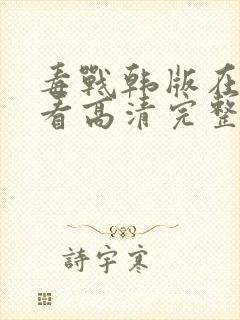 毒戰韩版在
看高清完整
詩宇寒